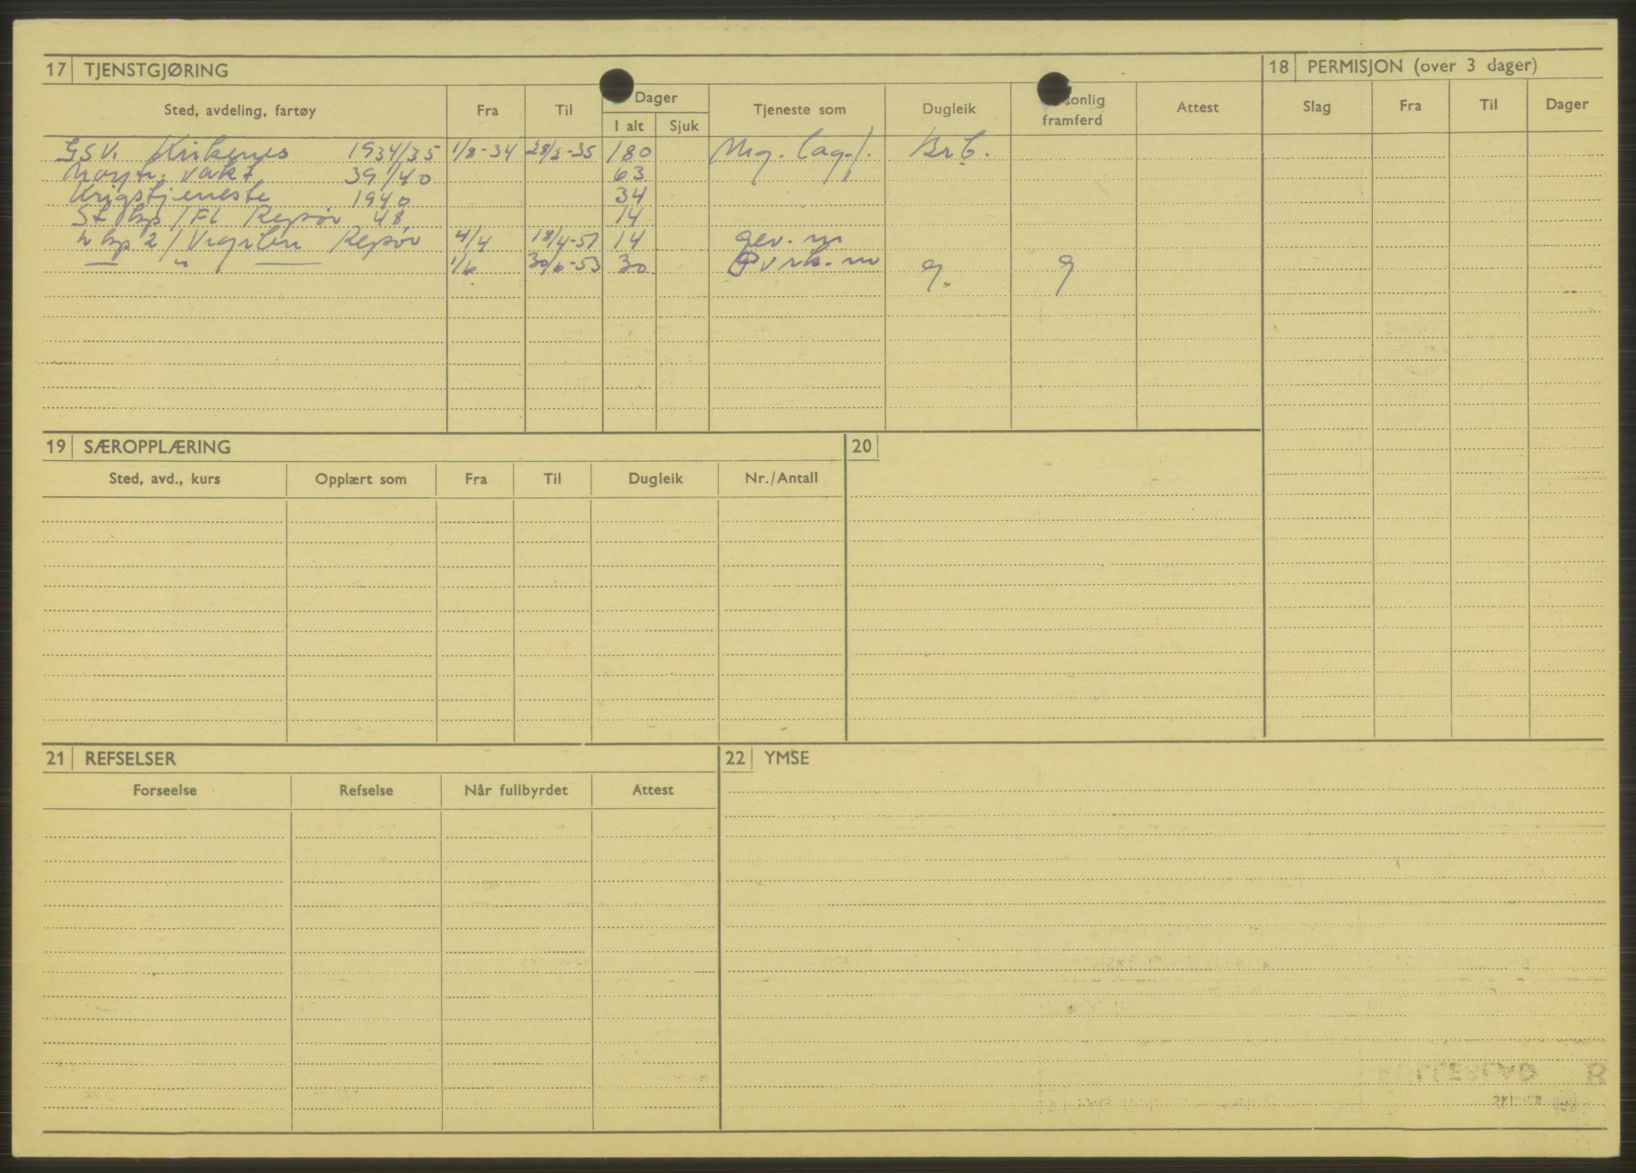 17 TJENSTGJØRING
18 PERMISJON (over 3 dager)
Sted, avdeling, fartøy Fra Til Dager Tjeneste som Dugleik sonlig framferd Attest Slag Fra Til Dager
I alt Sjuk
GSV. Kirkenes 1934/35 1/8-34 28/2-35 180 Mg. lag f. Br.C.
Nøytr. vakt 39/40 63
Krigstjeneste 1940 34
St kp / Fl Repøv 48 14
kp 2 / Repøv 4/4 18/4-51 14 gev. m
— " — 1/6 30/6-53 30 m g. g
19 SÆROPPLÆRING
20
Sted, avd., kurs Opplært som Fra Til Dugleik Nr./Antall
21 REFSELSER
22 YMSE
Forseelse Refselse Når fullbyrdet Attest